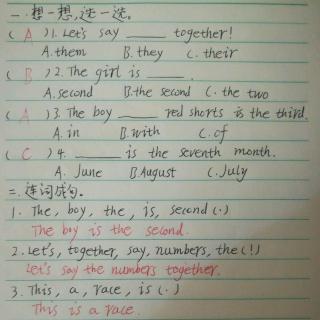 一.想一想,选一选。
( A )1. Let's say ____ together!
A. them B. they C. their
( B )2. The girl is ____.
A. second B. the second C. the two
( A )3. The boy ____ red shorts is the third.
A. in B. with C. of
( C )4. ____ is the seventh month.
A. June B. August C. July
二.连词成句。
1. The, boy, the, is, second (.)
The boy is the second.
2. Let's, together, say, numbers, the (!)
Let's say the numbers together.
3. This, a, race, is (.)
This is a race.